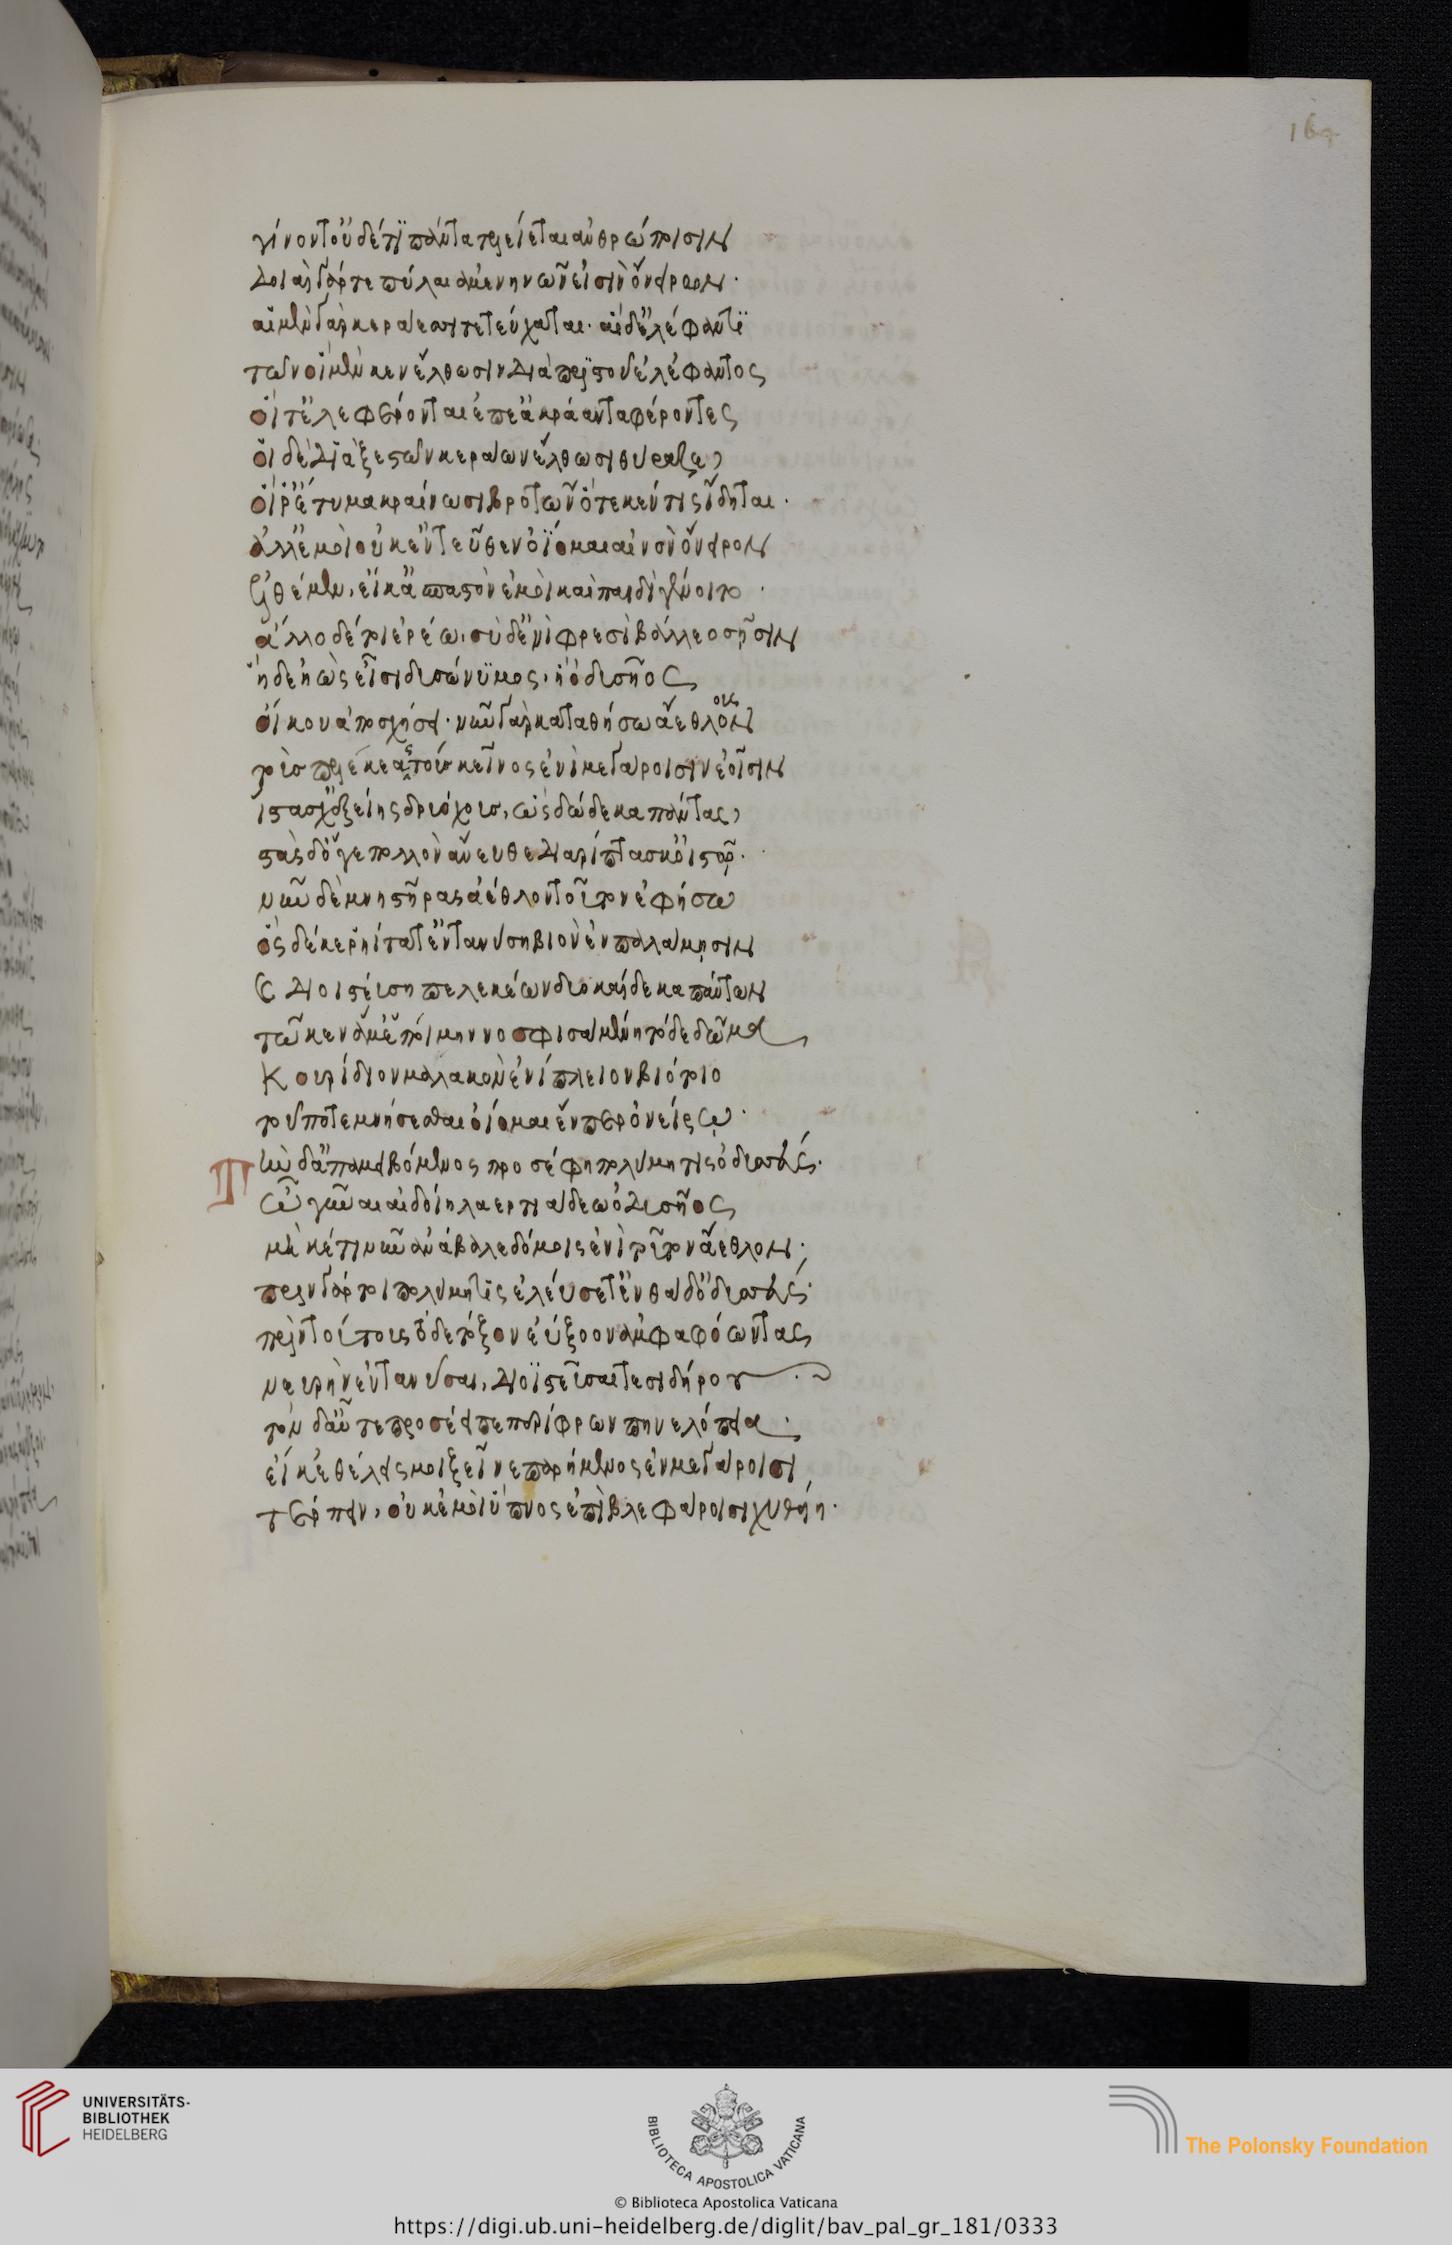 167
γίνοντ' οὐδέ τι πάντα τελείεται ἀνθρώποισιν
Δοιαὶ γάρ τε πύλαι ἀμενηνῶν εἰσὶν ὀνείρων·
αἱ μὲν γὰρ κεράεσσι τετεύχαται· αἱ δ' ἐλέφαντι
τῶν οἳ μέν κεν ἔλθωσιν διὰ πριστοῦ ἐλέφαντος
οἵ τ' ἐλεφαίρονται ἔπε' ἀκράαντα φέροντες
οἳ δὲ διὰ ξεστῶν κεράων ἔλθωσι θύραζε,
οἵ ῥ' ἔτυμα κραίνωσι βροτῶν ὅτε κέν τις ἴδηται.
ἀλλ' ἐμοὶ οὐκ ἐντεῦθεν ὀΐομαι αἰνὸν ὄνειρον
ἐλθέμεν, εἴ κ' ἀσπαστὸν ἐμοὶ καὶ παιδὶ γένοιτο.
ἄλλο δέ τοι ἐρέω, σὺ δ' ἐνὶ φρεσὶ βάλλεο σῇσιν
ἥδε ἠὼς εἶσι δυσώνυμος, ἥ ὀδυσῆος
οἴκου ἀποσχήσει· νῦν γὰρ καταθήσω ἄεθλον
ους
τοὺς πελέκεας τοὺς κεῖνος ἐνὶ μεγάροισιν ἑοῖσιν
ἵστασχ' ἑξείης δρυόχους, ὣς δώδεκα πάντας,
στὰς δ' ὅγε πολλὸν ἄνευθε διαρίπτασκ' ὀϊστόν.
νῦν δὲ μνηστῆρας ἄεθλον τοῦτον ἐφήσω
ὃς δέ κε ῥηΐτατ' ἐντανύσῃ βιὸν ἐν παλάμῃσιν
Καὶ διοϊστεύσῃ πελεκέων δυοκαίδεκα πάντων
τῷ κεν ἅμ' ἑσποίμην νοσφισαμένη τόδε δῶμα
Κουρίδιον μάλα καλὸν ἐνίπλειον βιότοιο
τοῦ ποτε μνήσεσθαι ὀΐομαι ἔν περ ὀνείρῳ.
Τὴν δ' ἀπαμειβόμενος προσέφη πολύμητις ὀδυσσεύς.
ὦ γύναι αἰδοίη λαερτιάδεω ὀδυσῆος
μὴκέτι νῦν ἀνάβαλλε δόμοις ἔνι τοῦτον ἄεθλον·
πρὶν γάρ τοι πολύμητις ἐλεύσετ' ἐνθάδ' ὀδυσσεύς.
πρὶν τούτους τόδε τόξον ἐΰξοον ἀμφαφόωντας
νευρὴν ἐντανύσαι, διοϊστεῦσαί τε σιδήρου.
τὸν δ' αὖτε προσέειπε περίφρων πηνελόπεια.
εἴ κ' ἐθέλεις μοι ξεῖνε παρήμενος ἐν μεγάροισι
τέρπειν, οὔ κ' ἐμοὶ ὕπνος ἐπὶ βλεφάροισι χυθείη.
UNIVERSITÄTS-
BIBLIOTHEK
HEIDELBERG
BIBLIOTECA APOSTOLICA VATICANA
The Polonsky Foundation
© Biblioteca Apostolica Vaticana
https://digi.ub.uni-heidelberg.de/diglit/bav_pal_gr_181/0333